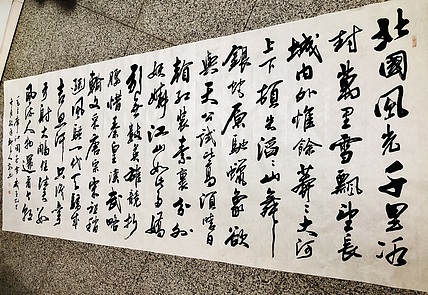 北国風光千里冰
封萬里雪飄望長
城内外惟餘莽々大河
上下頓失滔々山舞
銀蛇原馳蠟象欲
與天公試比高須晴日
看紅装素裹分外
妖嬈江山如此多嬌
引無數英雄競折
腰惜秦皇漢武略
輸文采唐宗宋祖稍
遜風騷一代天驕成
吉思汗只識彎
弓射大鵰俱往矣
數風流人物還看今朝